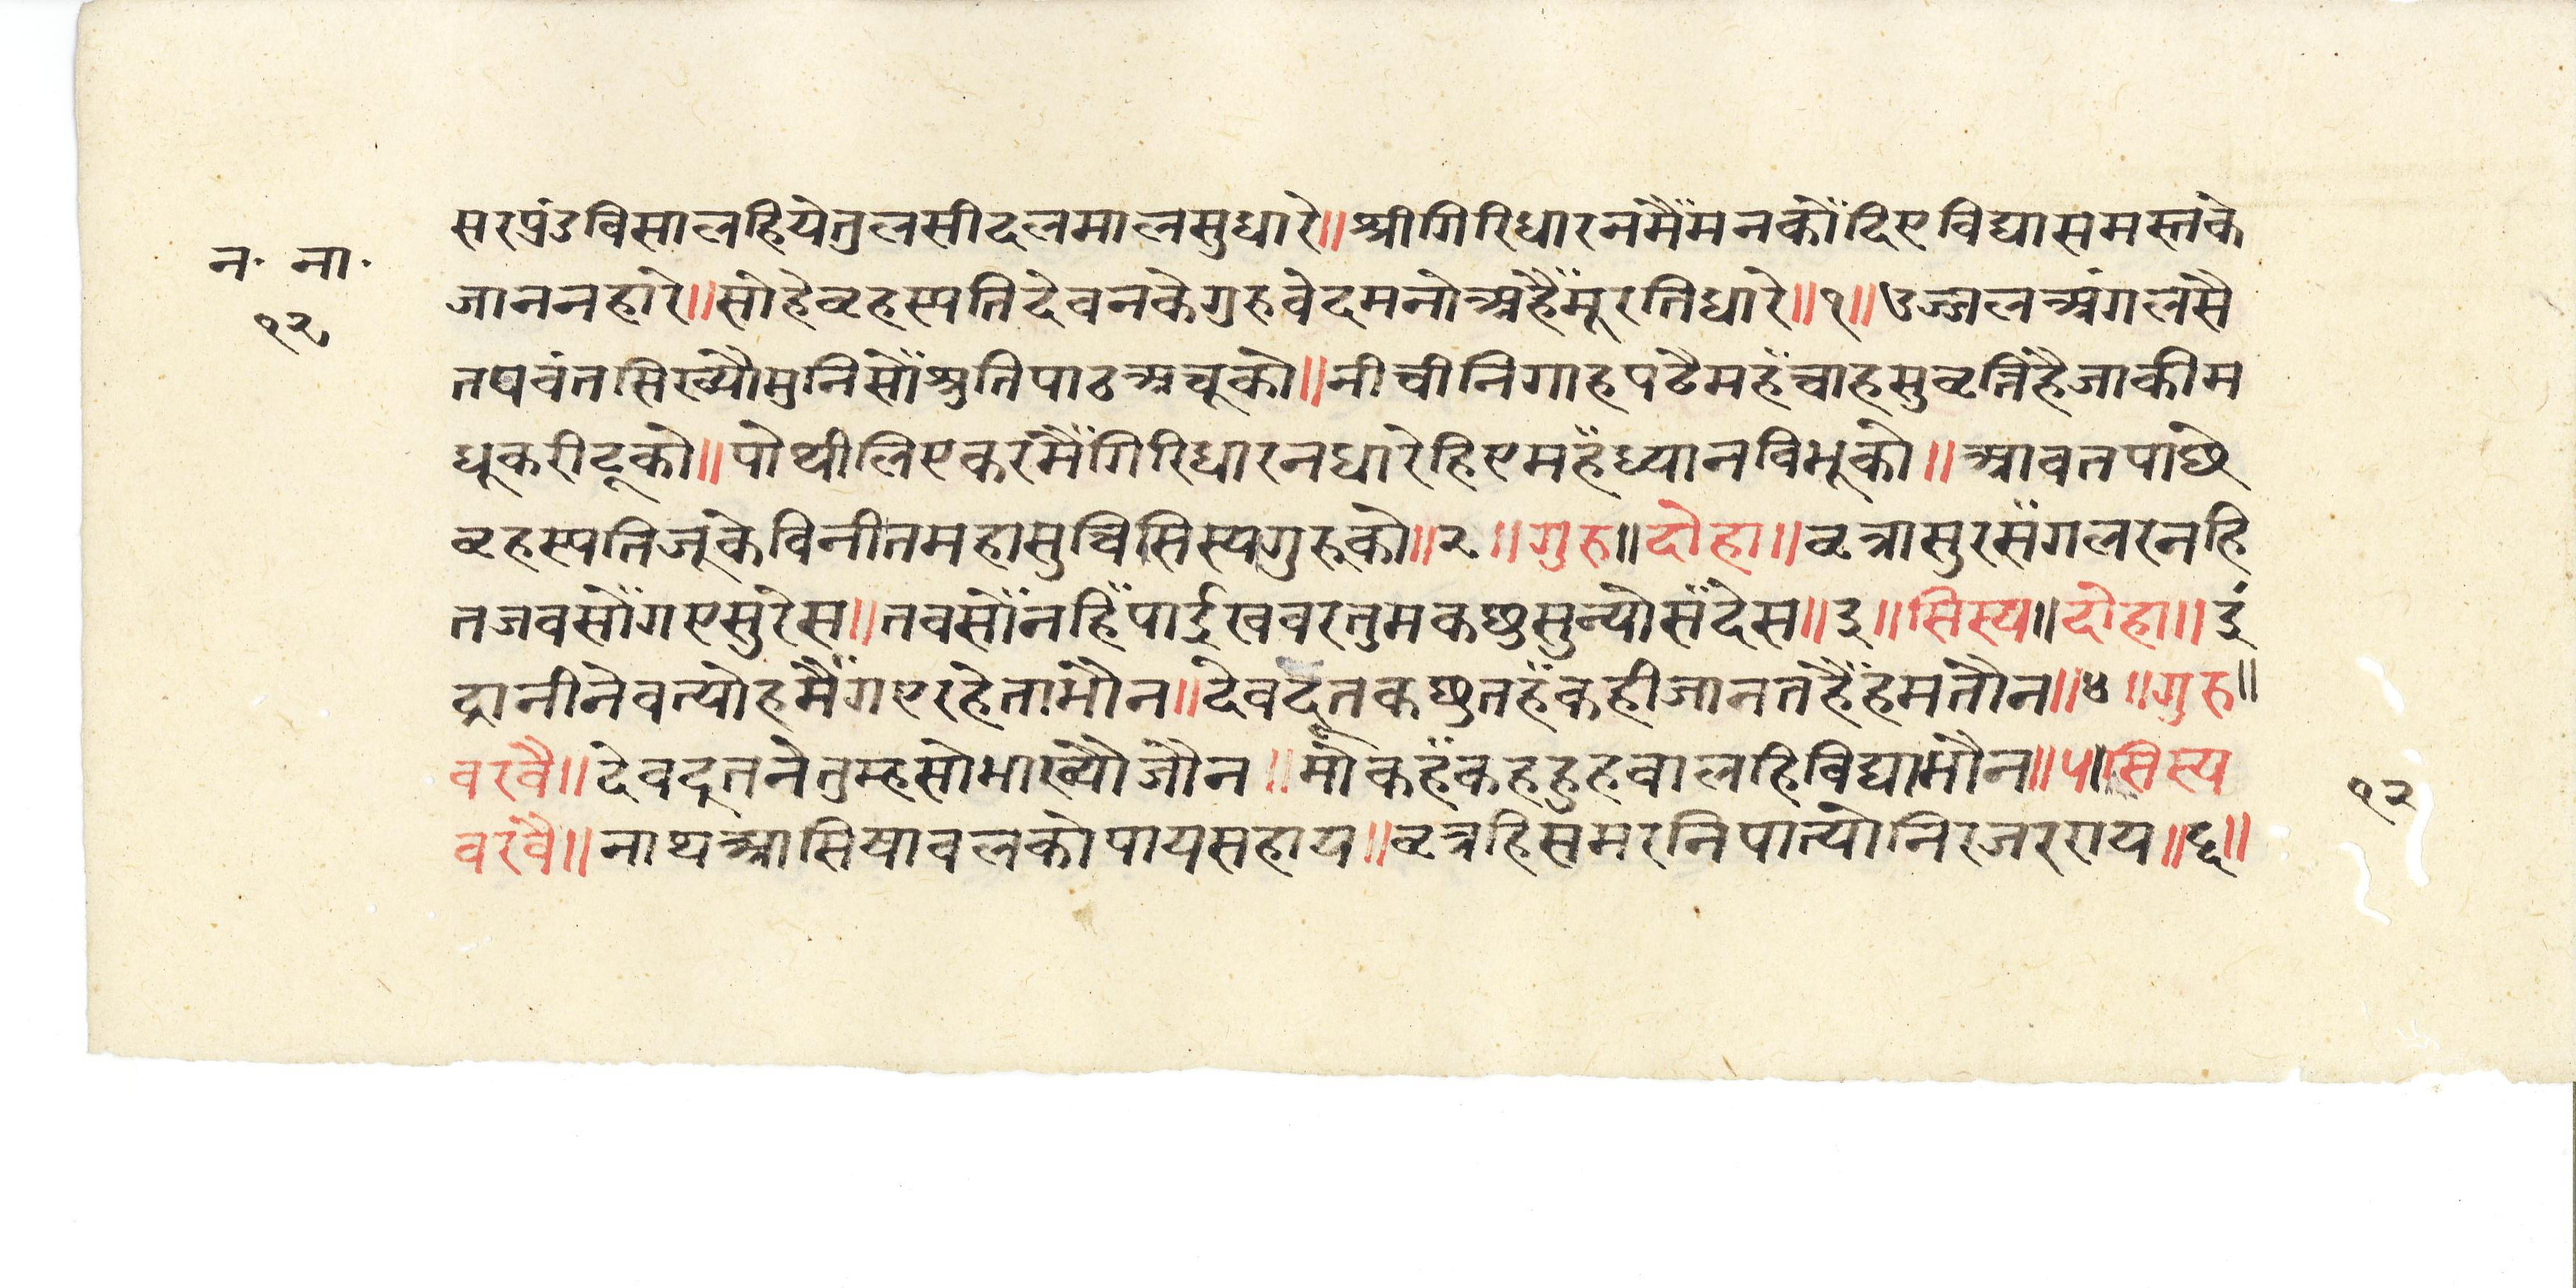 न॰ ना॰
१२
सरप्रंडविसालहियेतुलसीदलमालसुधारे॥श्रीगिरिधारनमैंमनकोंदिएविद्यासमस्तके
जाननहारे॥सोहेव्रहस्पतिदेवनकेगुरुवेदमनोअहैंमूरतिधारे॥१॥उज्जलअंगलसै
तपवंतसिख्यौमुनिसौंश्रुतिपाठअचूको॥नीचीनिगाहपढैमहँचाहसुव्रत्तिहैजाकीम
धूकरीटूको॥पोथीलिएकरमैंगिरिधारनधारेहिएमहँध्यानविभूको॥आवतपाछे
व्रहस्पतिजूकेविनीतमहासुचिसिस्यगुरूको॥२॥गुरु॥दोहा॥व्रत्रासुरसँगलरनहि
तजवसोंगएसुरेस॥तवसोंनहिंपाईखवरतुमकछुसुन्योसँदेस॥३॥सिस्य॥दोहा॥इं
द्रानीनेवत्योहमैंगएरहेतामौन॥देवदूतकछुतहँकहीजानतहैंहमतौन॥४॥गुरु॥
वरवै॥देवदूतनेतुम्हसोभाख्यौजौन॥मोकहँकहहुहवालहिविद्याभौन॥५॥सिस्य
वरवै॥नाथआसिषावलकोपायसहाय॥व्रत्रहिसमरनिपात्योनिरजरराय॥६॥
१२